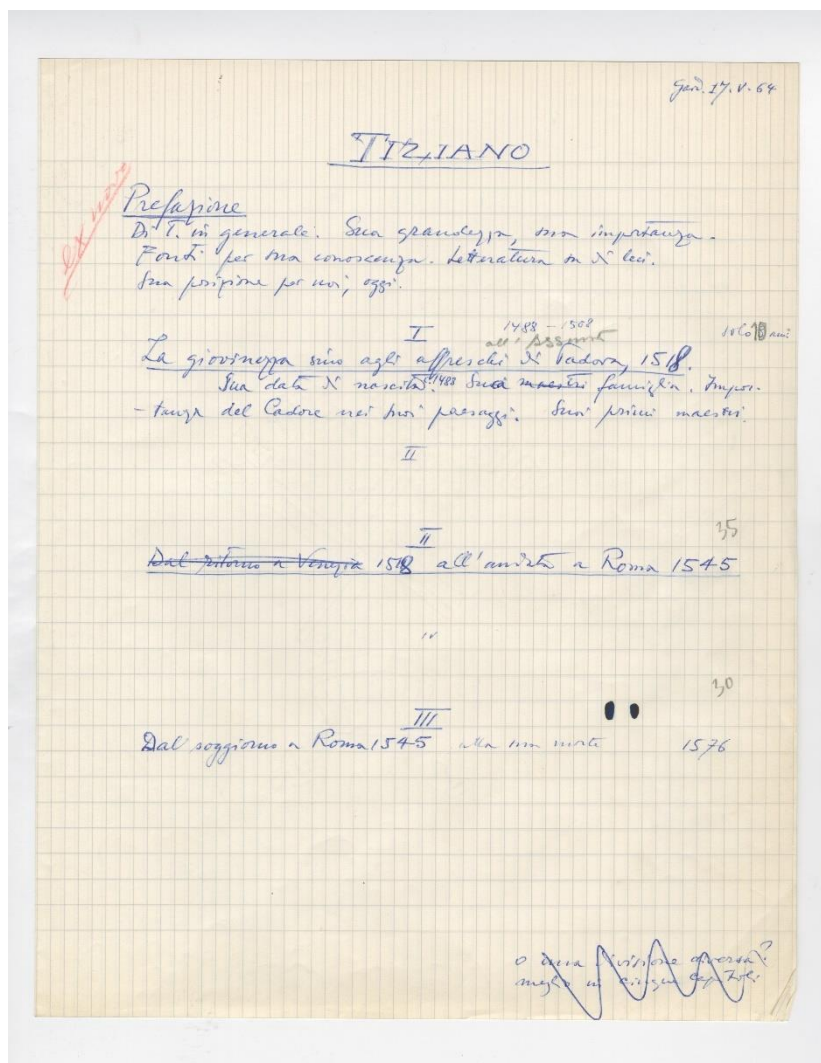 17.V.64
TIZIANO
ex novo
Prefazione
Di T. in generale. Sua grandezza, sua importanza.
Fonti per sua conoscenza. Letteratura su di lui.
Sua posizione per noi, oggi.
I
1488 – 1508
all'Assunta
solo 10 anni
La giovinezza sino agli affreschi di Padova, 1518.
Sua data di nascita: 1488 Sua maestri famiglia. Impor-
-tanza del Cadore nei suoi paesaggi. Suoi primi maestri.
II
35
II
Dal ritorno a Venezia 1518 all'andata a Roma 1545
30
III
Dal soggiorno a Roma 1545 alla sua morte 1576
o una divisione diversa?
meglio in cinque capitoli